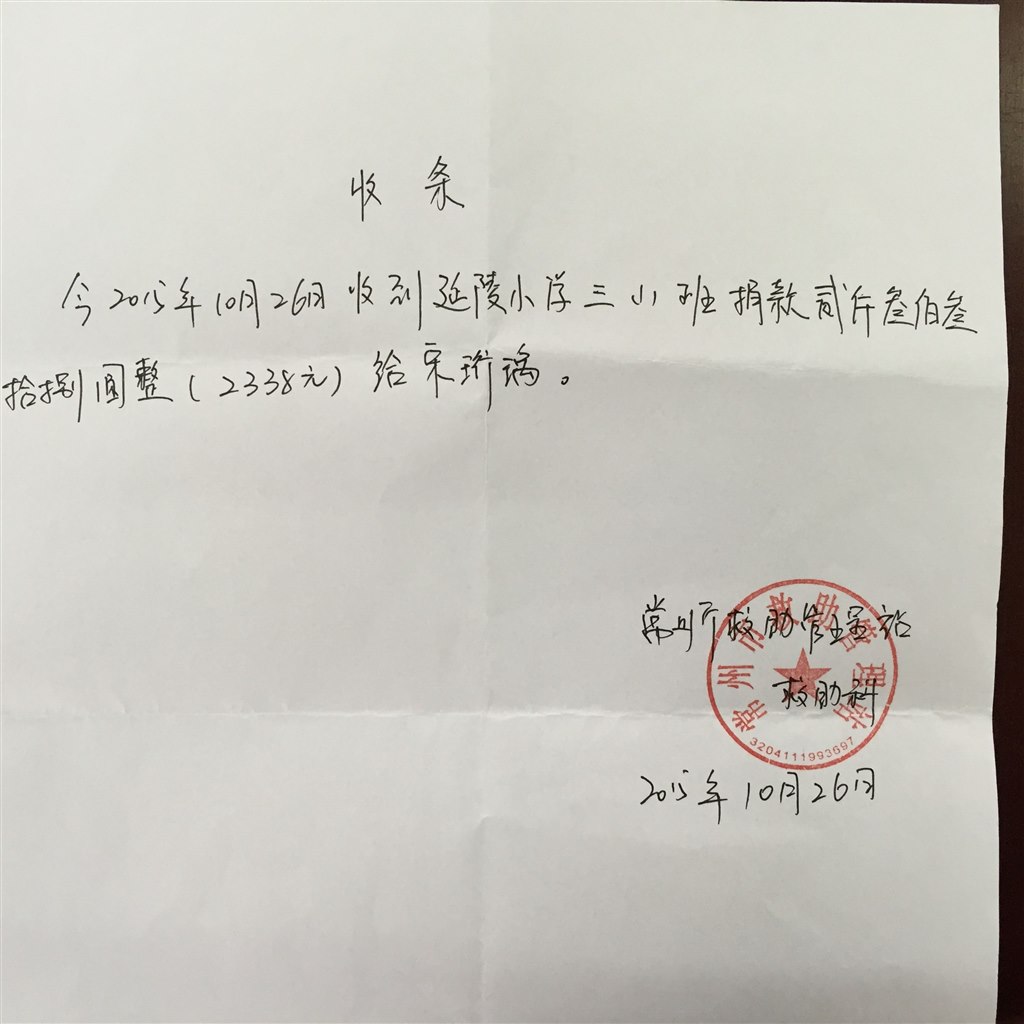 收 条
今2015年10月26日收到延陵小学三(1)班捐款贰仟叁佰叁
拾捌圆整(2338元)给宋珩瑀。
常州市救助管理站
救助科
2015年10月26日
常州市救助管理站
3204111993697